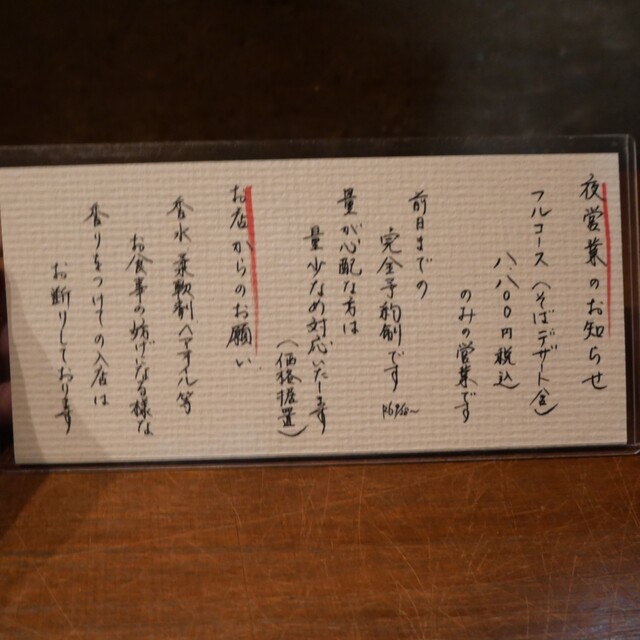 夜営業のお知らせ
フルコース（そばデザート含）
八.八〇〇円税込）
のみの営業です
前日までの
完全予約制です
量が心配な方は
量少なめ対応いたします
（価格据置）
お店からのお願い
香水柔軟剤ヘアオイル等
お食事の妨げになる様な
香りをつけての入店は
お断りしております